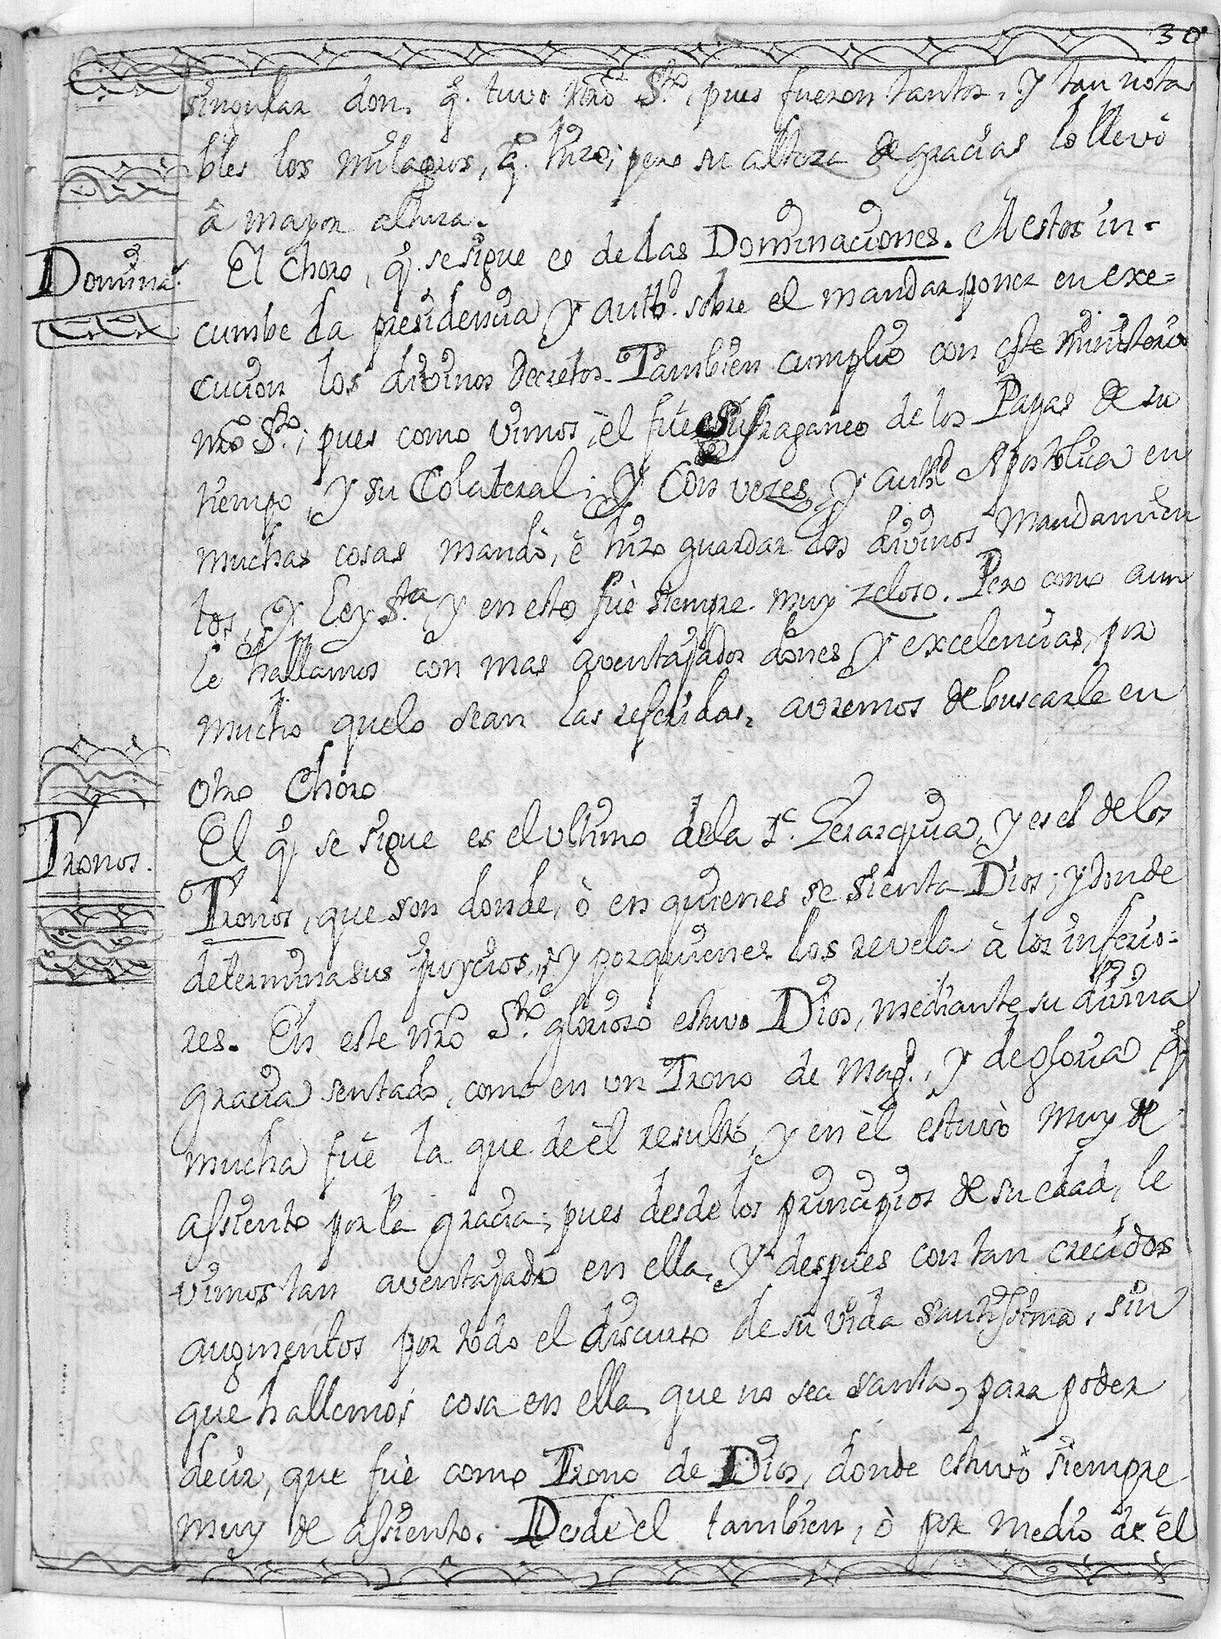 30
singular don, q̃. tuvo nrõ S.to, pues fueron tantos, y tan nota
bles los milagros, q̃. hizo; pero su alteza de gracias lo llevó
â mayor altura.
Domina.s
El Choro, q̃. se sigue es de las Dominaciones. A estos in-
cumbe la presidencia y autth.d sobre el mandar poner en exe=
cucion los divinos decretos. Tambien cumplió con este ministerio
nrõ S.to; pues como vimos, èl fuè Sufraganeo de los Papas de su
tiempo, y su Colateral; y con vezes, y auth.d Apostolica en
muchas cosas mandò, è hizo guardar los divinos Mandamien
tos, y Ley S.ta y en esto fuè siempre muy zeloso. Pero como aun
le hallamos con mas aventajados dones y excelencias, por
mucho quelo sean las referidas, avremos de buscarle en
otro Choro
Tronos.
El q̃. se sigue es el ultimo de la 1.a Gerarquia, y es el de los
Tronos, que son donde, ò en quienes se sienta Dios; y donde
determina sus juycios, y por quienes los revela à los inferio=
res. En este nrõ S.to glorioso estuvo Dios, mediante su divina
gracia sentado, como en un Trono de Mag.d, y de gloria q̃
mucha fuè la que de èl resultó, y en èl estuvò muy de
assiento por la gracia; pues desde los principios de su edad, le
vimos tan aventajado en ella, y despues con tan crecidos
augmentos por todo el discurso de su vida santissima, sin
que hallemos cosa en ella que no sea santa, para poder
decir, que fuè como Trono de Dios, donde estuvò siempre
muy de assiento. Desde èl tambien, ò por medio de èl